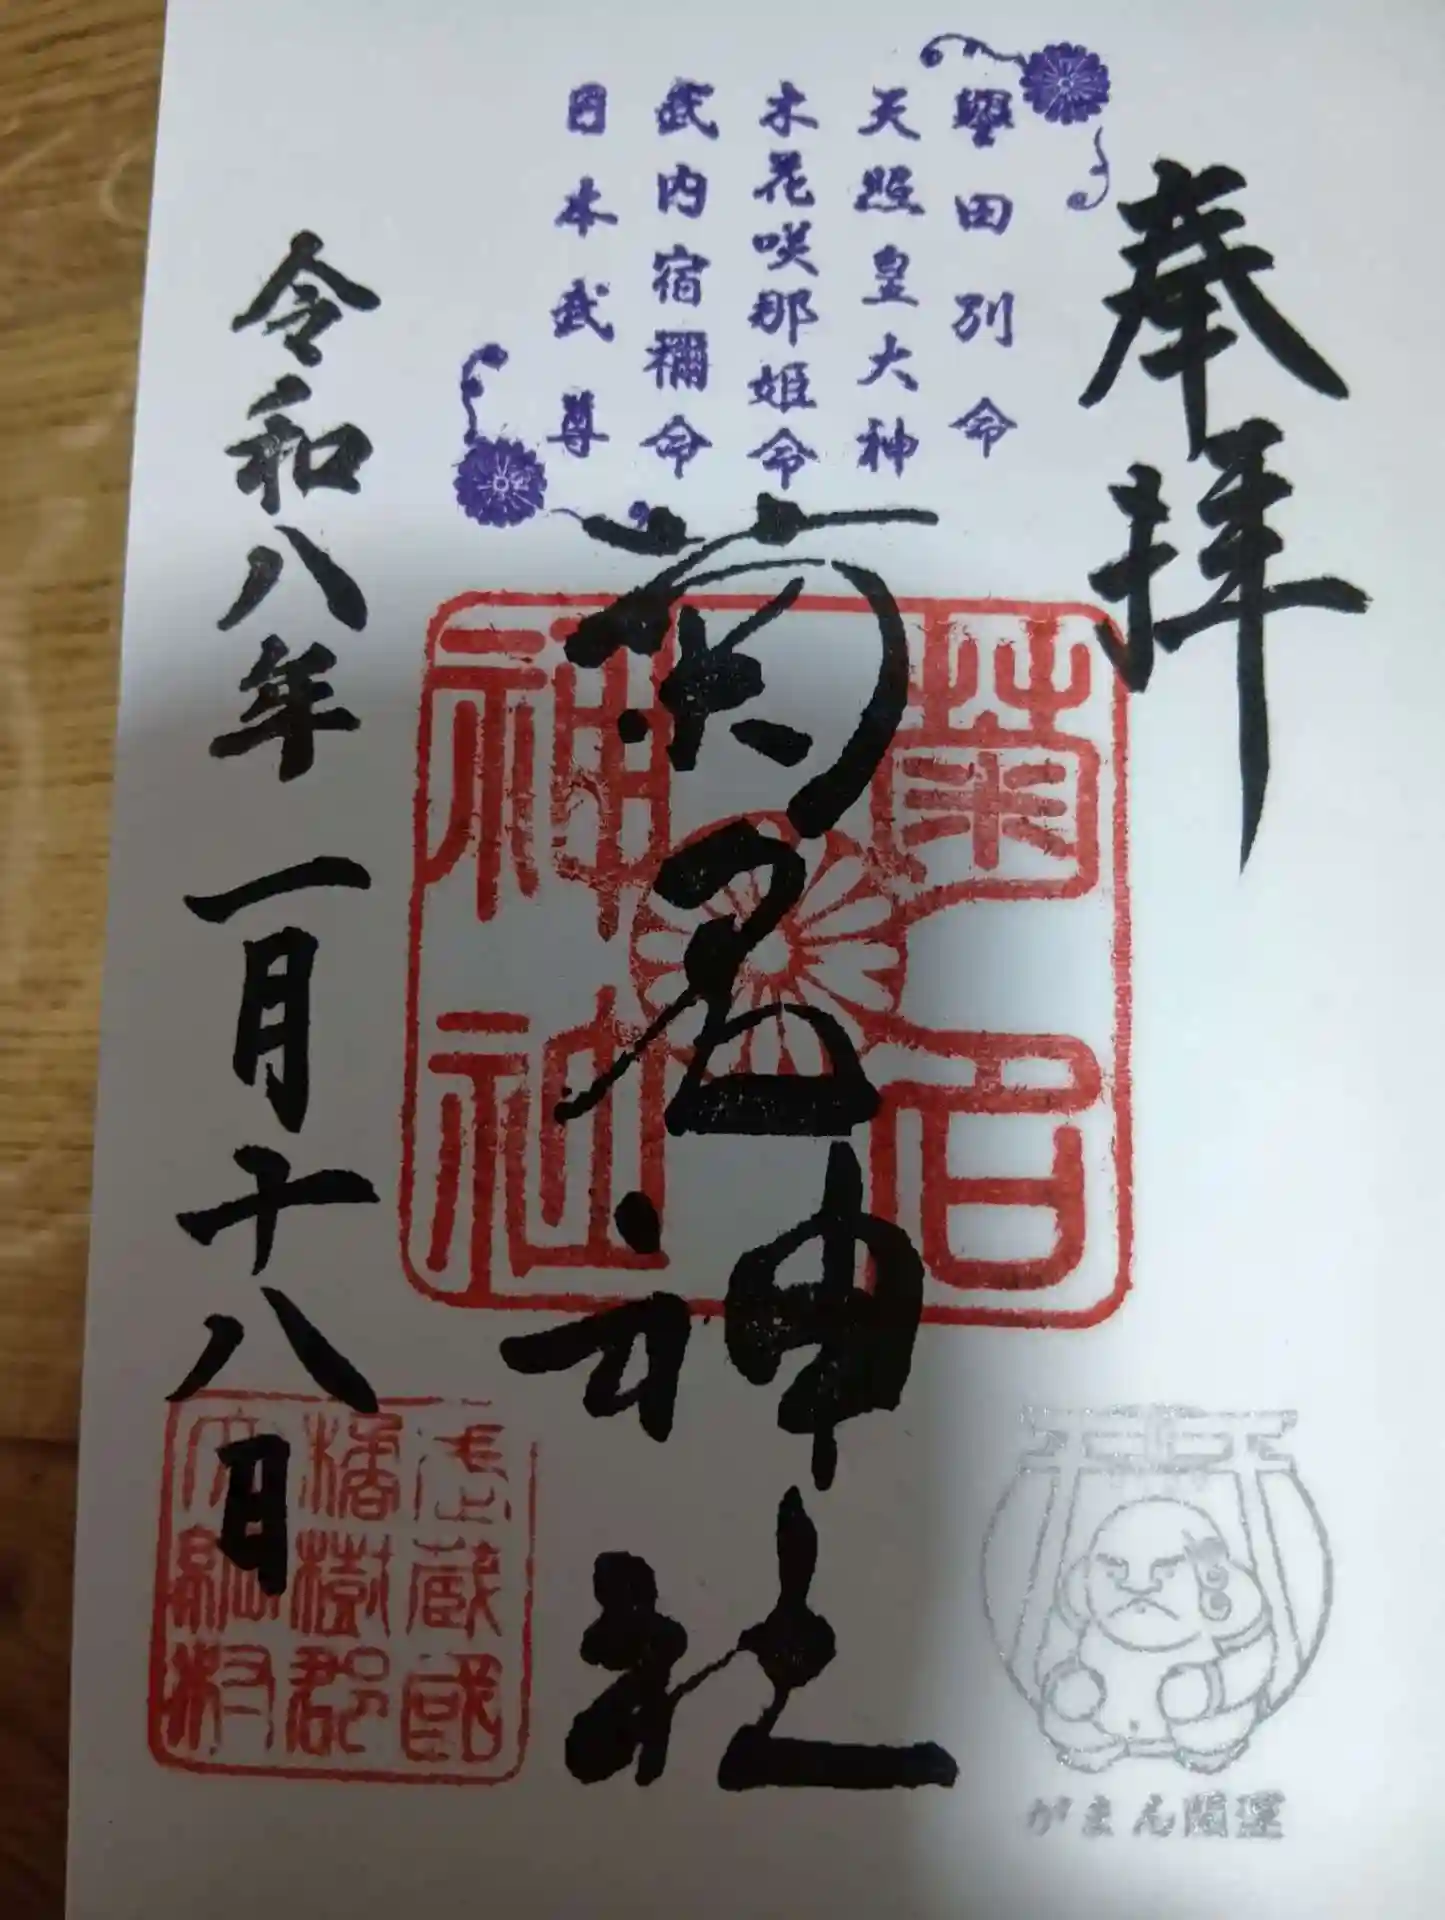 奉拝
譽田別命
天照皇大神
木花咲那姫命
武内宿禰命
日本武尊
菊名神社
菊名
神社
令和八年一月十八日
武蔵國
橘樹郡
大綱村
がまん開運